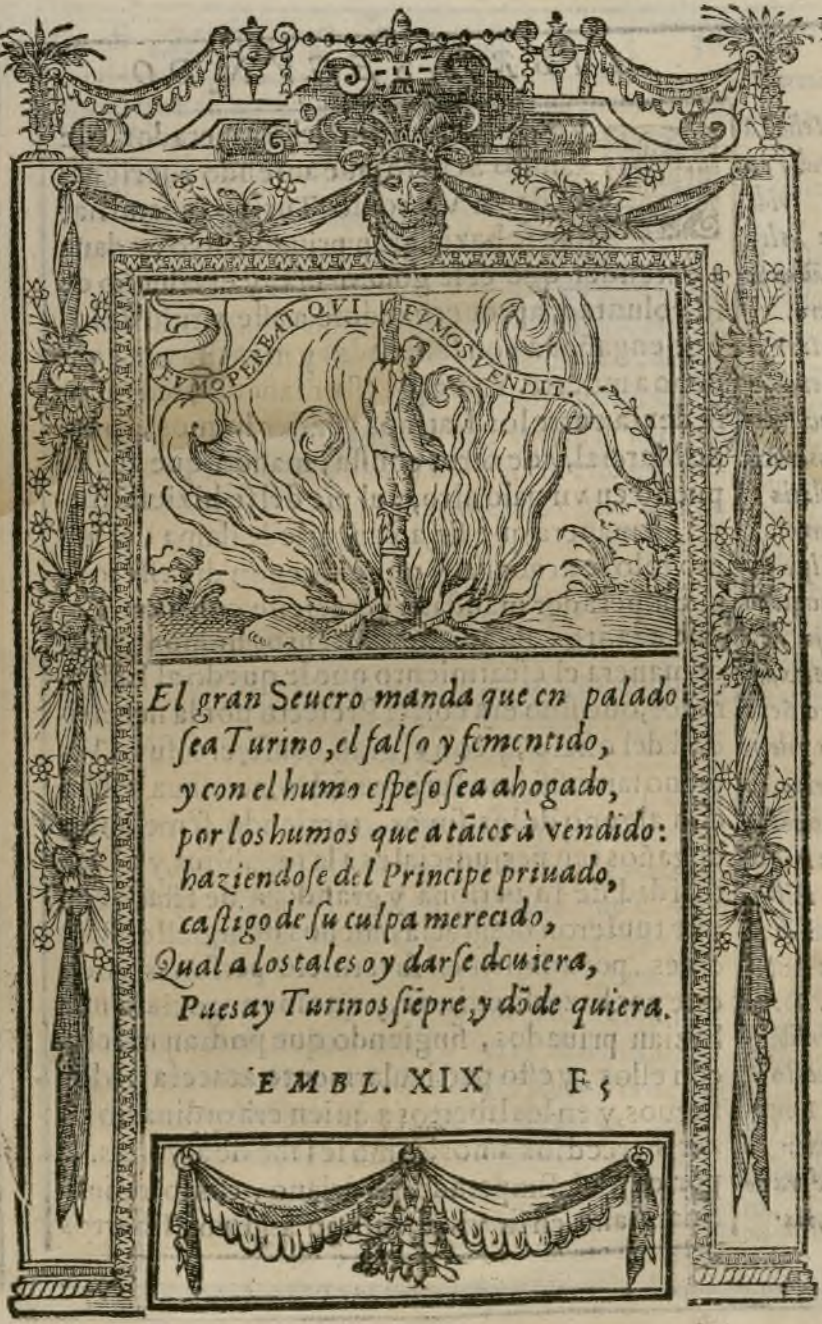 FVMO PEREAT QVI FVMOS VENDIT.
El gran Seuero manda que en palado
sea Turino, el falso y fementido,
y con el humo espeso sea ahogado,
por los humos que a tãtos à vendido:
haziendose del Principe priuado,
castigo de su culpa merecido,
Qual a los tales oy darse deuiera,
Pues ay Turinos siẽpre, y dõde quiera.
EMBL. XIX F5